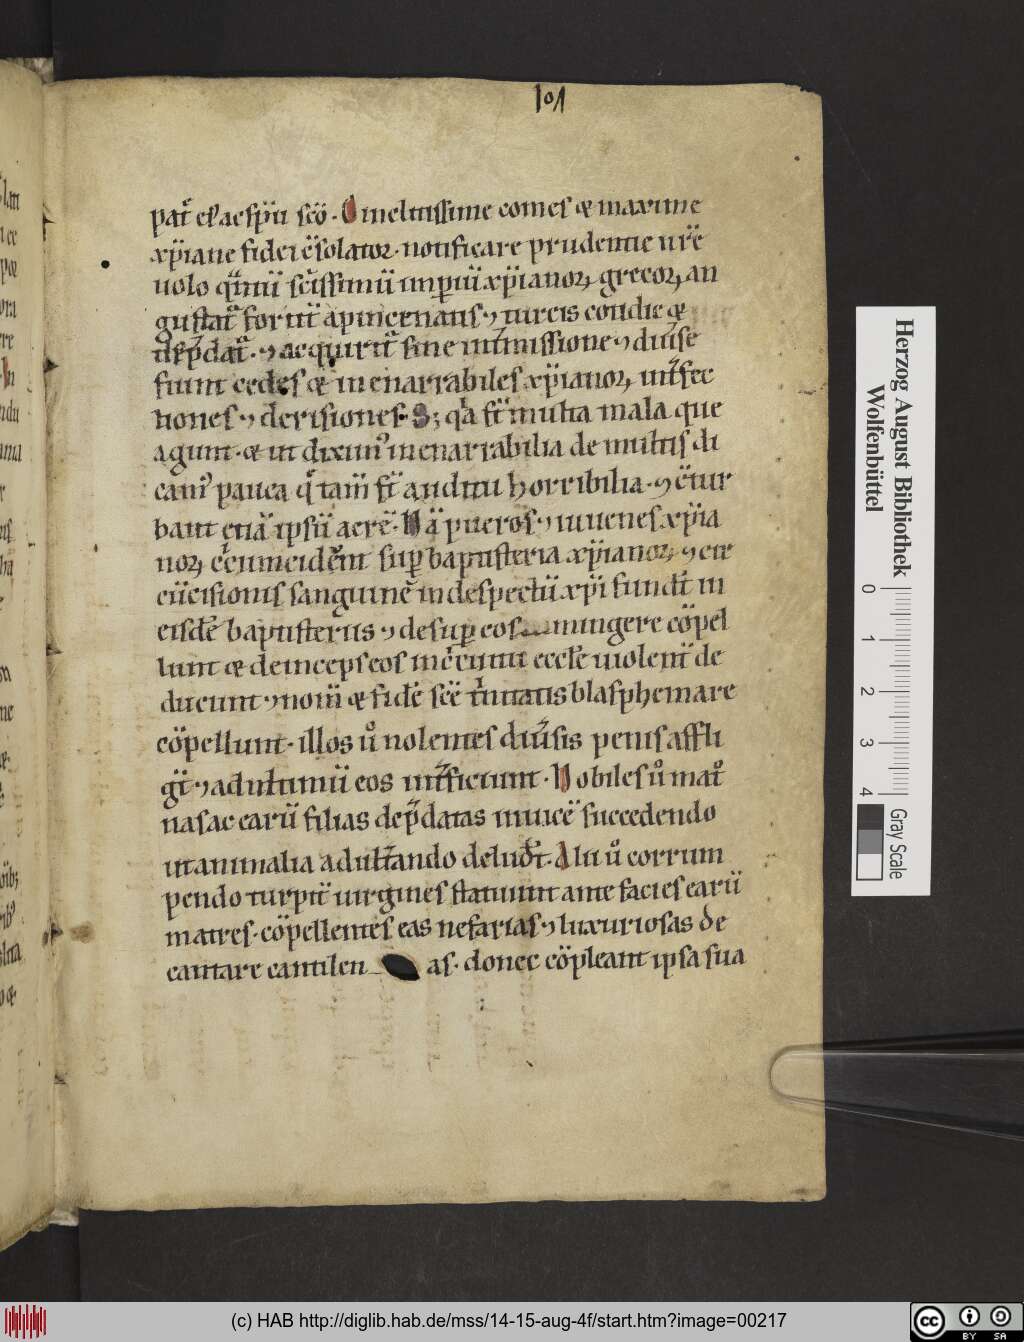 101
pat̄ & filii ac sp̄u sc̄o. O inclitissime comes & maxime
xp̄iane fidei c̄solator. notificare prudentie ur̄e
uolo qn̄tū sc̄issimū imp̄iū xp̄ianoꝝ grecoꝝ an
gustat̄ fortit̄ a pincenatis ⁊ turcis cotidie &
dep̄dat̄. ⁊ acquirit̄ sine int̄missione ⁊ diu̾se
fiunt cedes & inenarrabiles xp̄ianoꝝ int̾fec
tiones ⁊ derisiones. S; qa st̄ multa mala que
agunt. & ut dixim᷒ inenarrabilia de multis di
cam᷒ pauca q̄ tam̄ st̄ auditu horribilia. ⁊ c̄tur
bant etiā ipsū aerē. Nā pueros ⁊ iuuenes xp̄ia
noꝝ c̄cumcidēnt sup̄ baptisteria xp̄ianoꝝ ⁊ cir
cūcisionis sanguinē in despectū xp̄i fundt̄ in
eisdē baptisteriis ⁊ desup̄ eos mingere cōpel
lunt & deinceps eos in c̄cuitu eccl̄e uiolent̄ de
ducunt ⁊ nom̄ & fidē sc̄e t̄nitatis blasphemare
cōpellunt. illos ů nolentes diu̾sis penis affli
gt̄ ⁊ ad ultimū eos int̾ficiunt. Nobiles ů mat̊
nas ac earū filias dep̄datas inuicē succedendo
ut animalia adult̾ando deludt̄. Alii ů corrum
pendo turpit̄ uirgines statuunt ante facies earū
matres. cōpellentes eas nefarias ⁊ luxuriosas de
cantare cantilen as. donec cōpleant ipsa sua
Herzog August Bibliothek
Wolfenbüttel
0 1 2 3 4
Gray Scale
(c) HAB http://diglib.hab.de/mss/14-15-aug-4f/start.htm?image=00217
cc BY SA